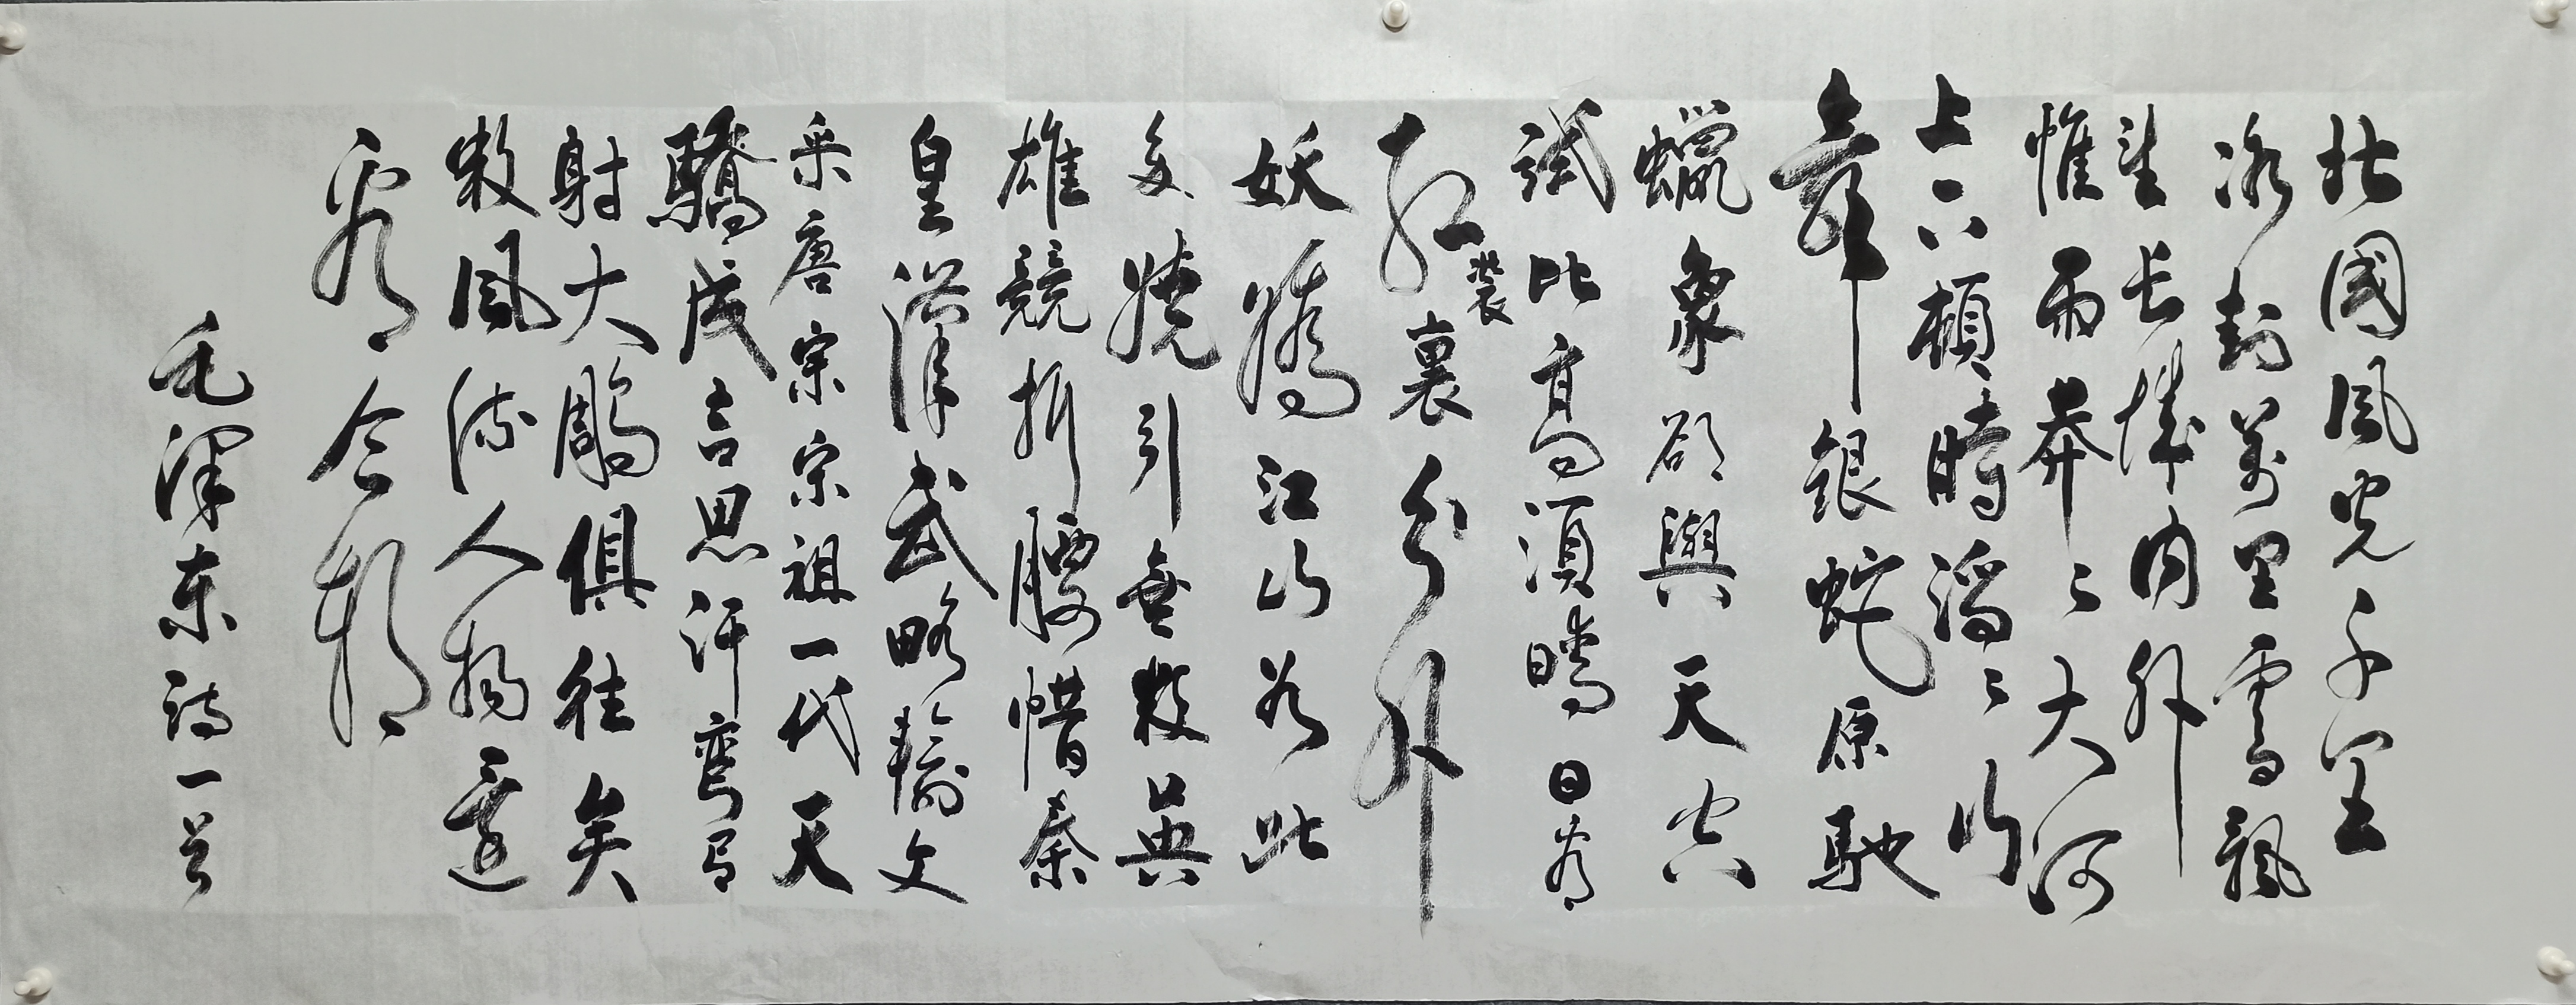 北國風光千里
冰封萬里雪飄
望長城內外
惟而莽々大河
上下頓時滔々山
舞銀蛇原馳
蠟象欲與天公
試比高須晴日看
紅裝裏分外
妖嬌江山如此
多嬈引無數英
雄競折腰惜秦
皇漢武略輸文
采唐宗宋祖一代天
驕成吉思汗彎弓
射大鵰俱往矣
數風流人物還
看今朝
毛澤東詩一首